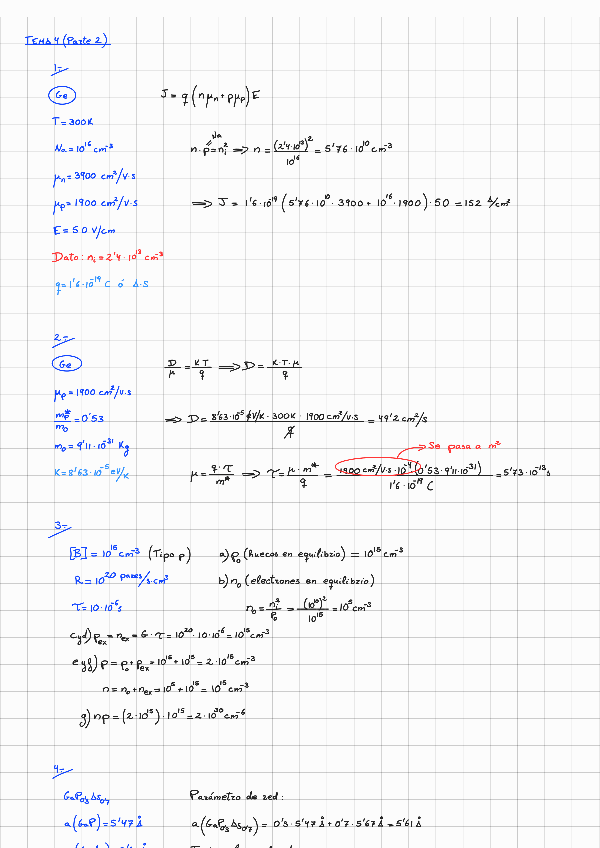 TEMA 4 (Parte 2)
1-
Ge
J = q (nμn + pμp) E
T = 300K
Na
Na = 10^16 cm^-3
n·p = ni^2 ⟹ n = (2'4·10^13)^2 / 10^16 = 5'76·10^10 cm^-3
μn = 3900 cm^2/V·s
μp = 1900 cm^2/V·s
⟹ J = 1'6·10^-19 (5'76·10^10 · 3900 + 10^16 · 1900) · 50 = 152 A/cm^2
E = 50 V/cm
Dato: ni = 2'4·10^13 cm^-3
q = 1'6·10^-19 C ó A·S
2-
Ge
D/μ = KT/q ⟹ D = K·T·μ/q
μp = 1900 cm^2/V·s
mp*/m0 = 0'53
⟹ D = 8'63·10^-5 eV/K · 300K · 1900 cm^2/V·s / q = 49'2 cm^2/s
Se pasa a m^2
m0 = 9'11·10^-31 Kg
K = 8'63·10^-5 eV/K
μ = q·τ/m* ⟹ τ = μ·m*/q = 1900 cm^2/V·s · 10^-4 (0'53 · 9'11·10^-31) / 1'6·10^-19 C = 5'73·10^-13 s
3-
[B] = 10^15 cm^-3 (Tipo p)
a) p0 (Huecos en equilibrio) = 10^15 cm^-3
R = 10^20 pares/s·cm^3
b) n0 (electrones en equilibrio)
τ = 10·10^-6 s
n0 = ni^2/p0 = (10^10)^2/10^15 = 10^5 cm^-3
c y d) pex = nex = G·τ = 10^20 · 10·10^-6 = 10^15 cm^-3
e y f) p = p0 + pex = 10^15 + 10^15 = 2·10^15 cm^-3
n = n0 + nex = 10^5 + 10^15 = 10^15 cm^-3
g) np = (2·10^15) · 10^15 = 2·10^30 cm^-6
4-
GaP0'3 As0'7
Parámetro de red:
a(GaP) = 5'47 Å
a(GaP0'3 As0'7) = 0'3 · 5'47 Å + 0'7 · 5'67 Å = 5'61 Å